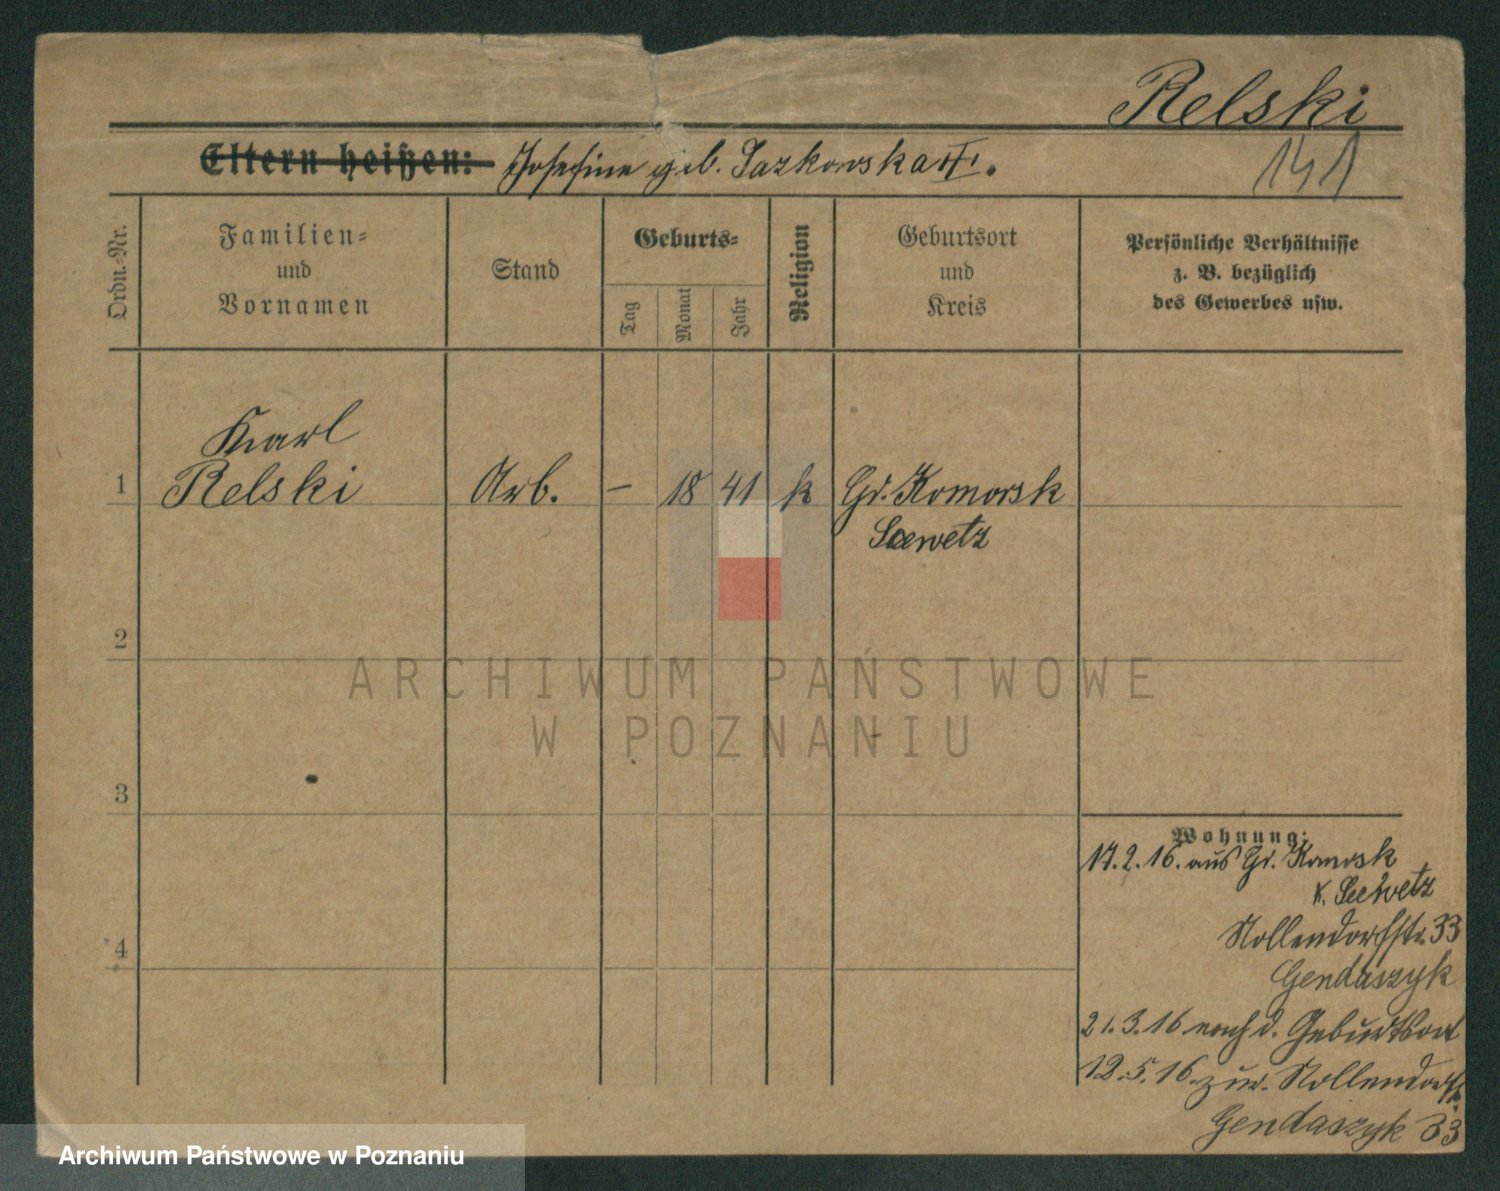 Relski
Eltern heißen: Josefine geb. Jazkowska III.
141
Ordn.-Nr.
Familien-
und
Vornamen
Stand
Geburts-
Tag
Monat
Jahr
Religion
Geburtsort
und
Kreis
Persönliche Verhältnisse
z. B. bezüglich
des Gewerbes usw.
Karl
1 Relski Arb. – 18 41 k Gr. Komorsk
Scewetz
2
3
4
Wohnung:
17.2.16. aus Gr. Komorsk
K. Seewetz
Nollendorfstr. 33
Gendaszyk
21.3.16 nach d. Geburtsort
12.5.16. zur. Nollendorfstr.
Gendaszyk 33
ARCHIWUM PAŃSTWOWE
W POZNANIU
Archiwum Państwowe w Poznaniu